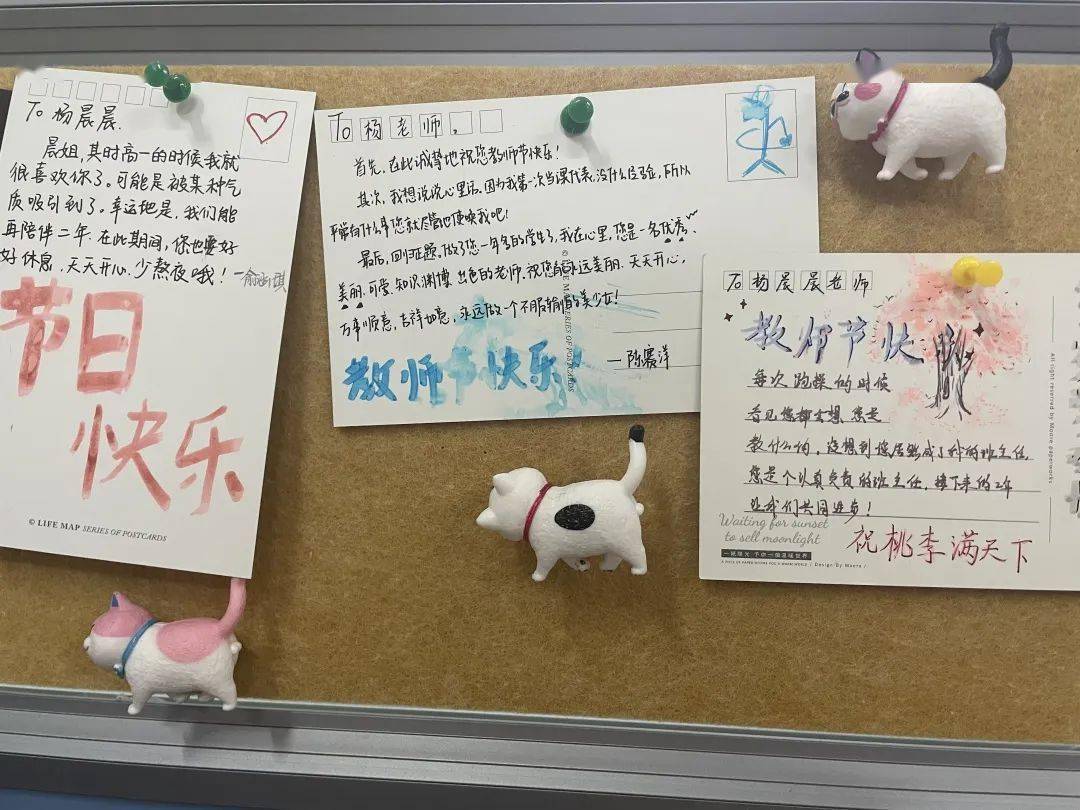 To 杨晨晨.
晨姐,其时高一的时候我就
很喜欢你了。可能是被某种气
质吸引到了。幸运地是,我们能
再陪伴二年.在此期间,您也要好
好休息,天天开心.少熬夜哦!一俞
节日
快乐
© LIFE MAP SERIES OF POSTCARDS
To 杨老师。
首先,在此诚挚地祝您教师节快乐!
其次,我想说说心里话。因为我第一次当课代表,没什么经验,所以
平常有什么事您就尽管地使唤我吧!
最后,回归正题。做了您一年多的学生了,我在心里,您是一名优秀、
美丽.可爱.知识渊博.出色的老师.祝您永远美丽.天天开心,
万事顺意,吉祥如意,永远做一个不服输的美少女!
教师节快乐
—陈赛洋
© LIFE MAP SERIES OF POSTCARDS
To 杨晨晨老师
教师节快
每次跑操的时候
看见您都会想您是
教什么的,没想到您居然成了我的班主任,
您是个认真负责的班主任,接下来的2年
让我们共同进步!
Waiting for sunset
to sell moonlight
祝桃李满天下
A PIECE OF PAPER WORKS FOR A WARM WORLD / Design By Maere /
All right reserved by Maere paperworks